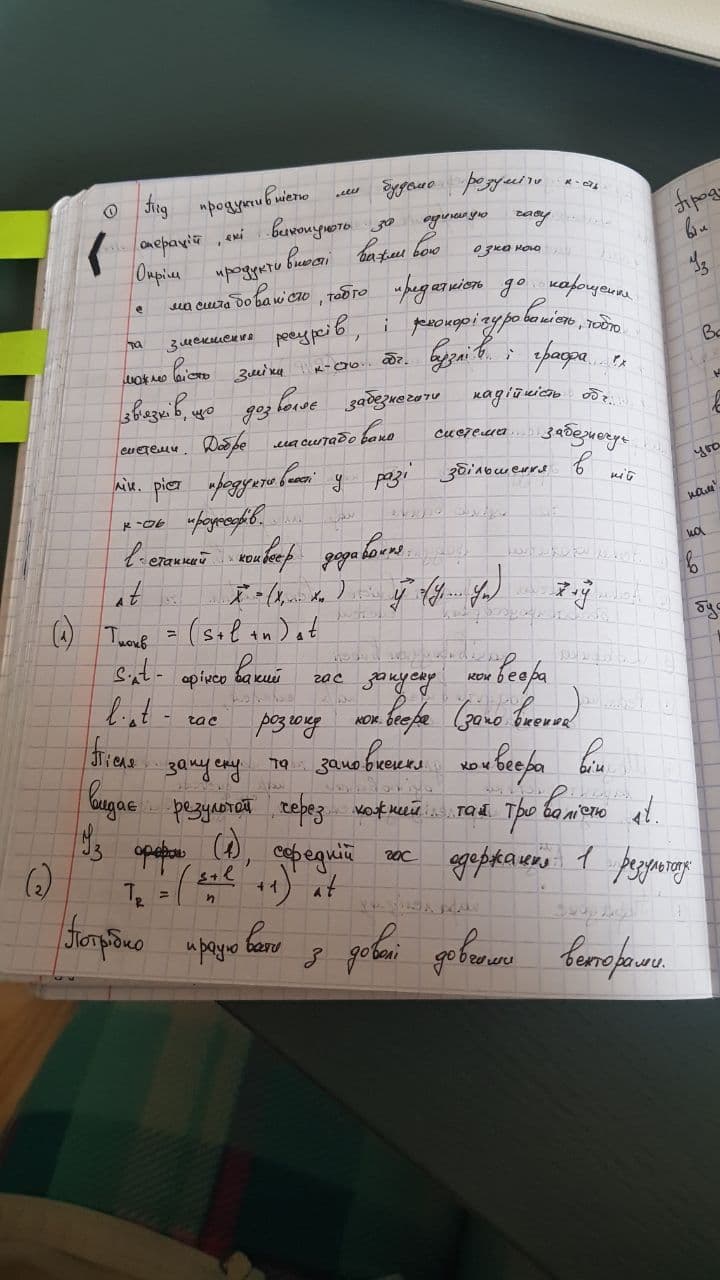 ① Під продуктивністю ми будемо розуміти к-сть
операцій, які виконують за одиницю часу
Окрім продуктивності важливою ознакою
є масштабованістю, тобто придатність до нарощення
та зменшення ресурсів, і реконфігурованість, тобто
можливість зміни к-сть обч. вузлів і графа їх
зв'язків, що дозволяє забезпечити надійність обч.
системи. Добре масштабована система забезпечує
лін. ріст продуктивності у разі збільшення в ній
к-сть процесорів.
l-етапний конвеєр додавання
Δt x⃗=(x₁...xₙ) y⃗=(y₁...yₙ) x⃗+y⃗
(1) Tконв = (s+l+n)Δt
s·Δt - фіксований час запуску конвеєра
l·Δt - час розгону конвеєра (заповнення)
Після запуску та заповнення конвеєра він
видає результат через кожний такт тривалістю Δt.
Із (1), середній час одержання 1 результату
(2) T_R = ((s+l)/n + 1) Δt
Потрібно працювати з доволі довгими векторами.
Прод
він
Із
в
на
в